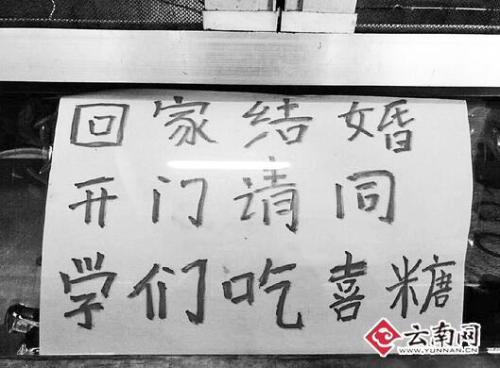 回家结婚
开门请同
学们吃喜糖
云南网
WWW.YUNNAN.CN